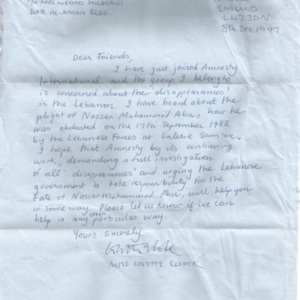 DAR AL-AMAN BLDG.
ENGLAND
L47 3DN
8th Dec 1997
Dear Friends,
I have just joined Amnesty
International and the group I belong to
is concerned about the 'disappearances' in
the Lebanon. I have heard about the
plight of Nasser Muhammad Abu, how he
was abducted on the 17th September 1982
by the Lebanese Forces at Galerie Sam'an.
I hope that Amnesty by its continuing
work, demanding a full investigation
of all 'disappearances' and urging the Lebanese
government to take responsibility for the
fate of Nasser Muhammad Abu, will help you
in some way. Please let us know if we can
help in any other particular way.
Yours Sincerely
MISS